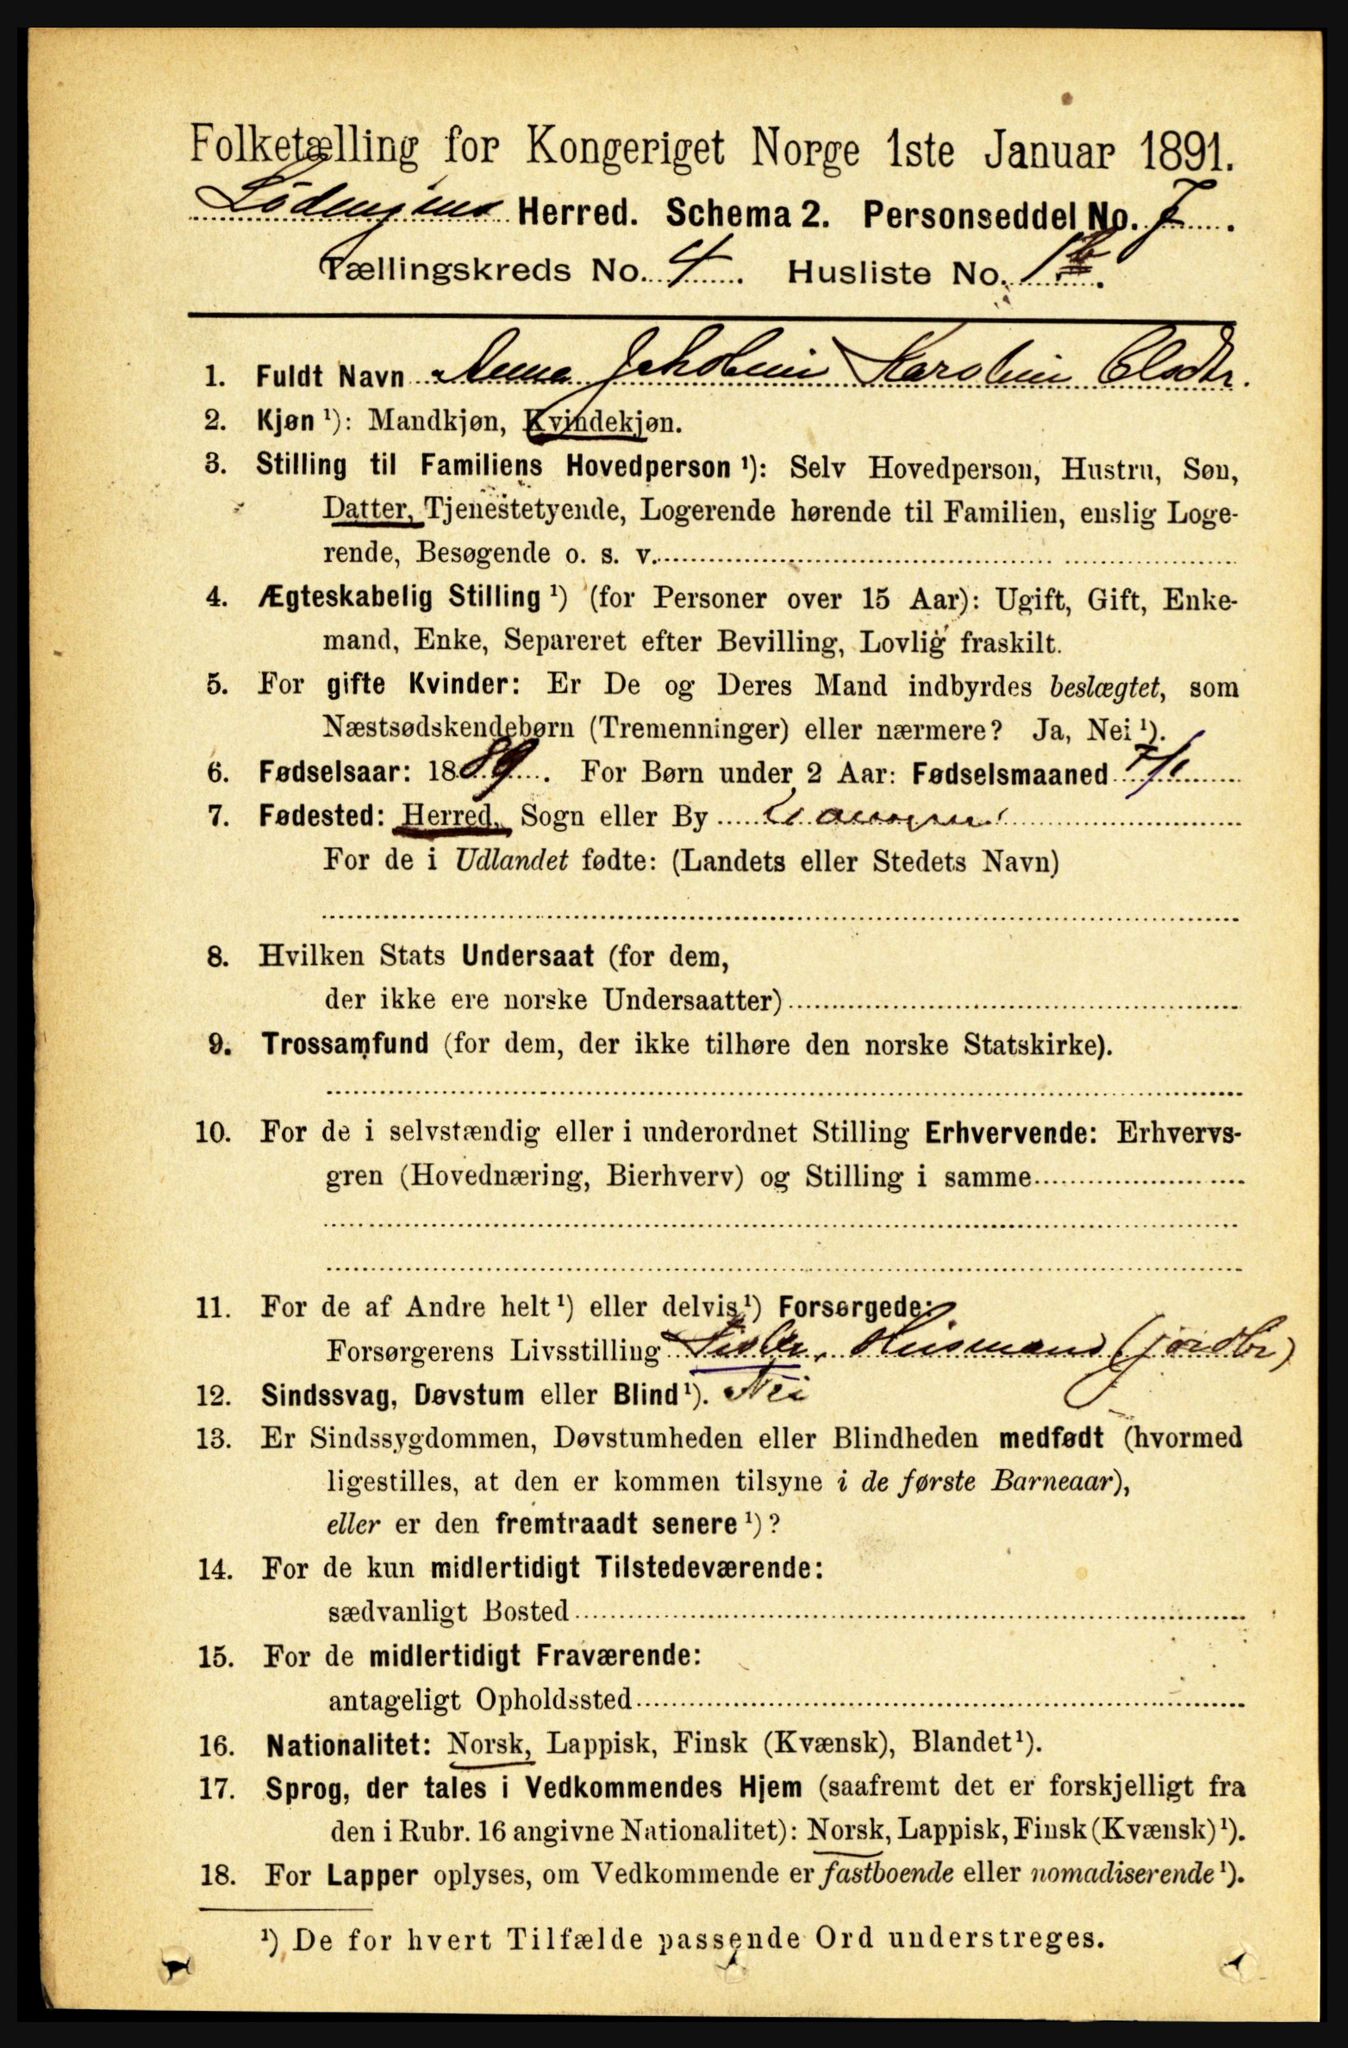 Folketælling for Kongeriget Norge 1ste Januar 1891.
Lødingens Herred. Schema 2. Personseddel No. 7.
Tællingskreds No. 4. Husliste No. 1b.
1. Fuldt Navn Anna Jakobine Karoline
2. Kjøn ¹): Mandkjøn, Kvindekjøn.
3. Stilling til Familiens Hovedperson ¹): Selv Hovedperson, Hustru, Søn,
Datter, Tjenestetyende, Logerende hørende til Familien, enslig Loge-
rende, Besøgende o. s. v.
4. Ægteskabelig Stilling ¹) (for Personer over 15 Aar): Ugift, Gift, Enke-
mand, Enke, Separeret efter Bevilling, Lovlig fraskilt.
5. For gifte Kvinder: Er De og Deres Mand indbyrdes beslægtet, som
Næstsødskendebørn (Tremenninger) eller nærmere? Ja, Nei ¹).
6. Fødselsaar: 1889. For Børn under 2 Aar: Fødselsmaaned 7/1
7. Fødested: Herred, Sogn eller By
For de i Udlandet fødte: (Landets eller Stedets Navn)
8. Hvilken Stats Undersaat (for dem,
der ikke ere norske Undersaatter)
9. Trossamfund (for dem, der ikke tilhøre den norske Statskirke).
10. For de i selvstændig eller i underordnet Stilling Erhvervende: Erhvervs-
gren (Hovednæring, Bierhverv) og Stilling i samme
11. For de af Andre helt ¹) eller delvis ¹) Forsørgede:
Forsørgerens Livsstilling Fisker, Husmand (jordbr)
12. Sindssvag, Døvstum eller Blind ¹). Nei
13. Er Sindssygdommen, Døvstumheden eller Blindheden medfødt (hvormed
ligestilles, at den er kommen tilsyne i de første Barneaar),
eller er den fremtraadt senere ¹)?
14. For de kun midlertidigt Tilstedeværende:
sædvanligt Bosted
15. For de midlertidigt Fraværende:
antageligt Opholdssted
16. Nationalitet: Norsk, Lappisk, Finsk (Kvænsk), Blandet ¹).
17. Sprog, der tales i Vedkommendes Hjem (saafremt det er forskjelligt fra
den i Rubr. 16 angivne Nationalitet): Norsk, Lappisk, Finsk (Kvænsk) ¹).
18. For Lapper oplyses, om Vedkommende er fastboende eller nomadiserende ¹).
¹) De for hvert Tilfælde passende Ord understreges.